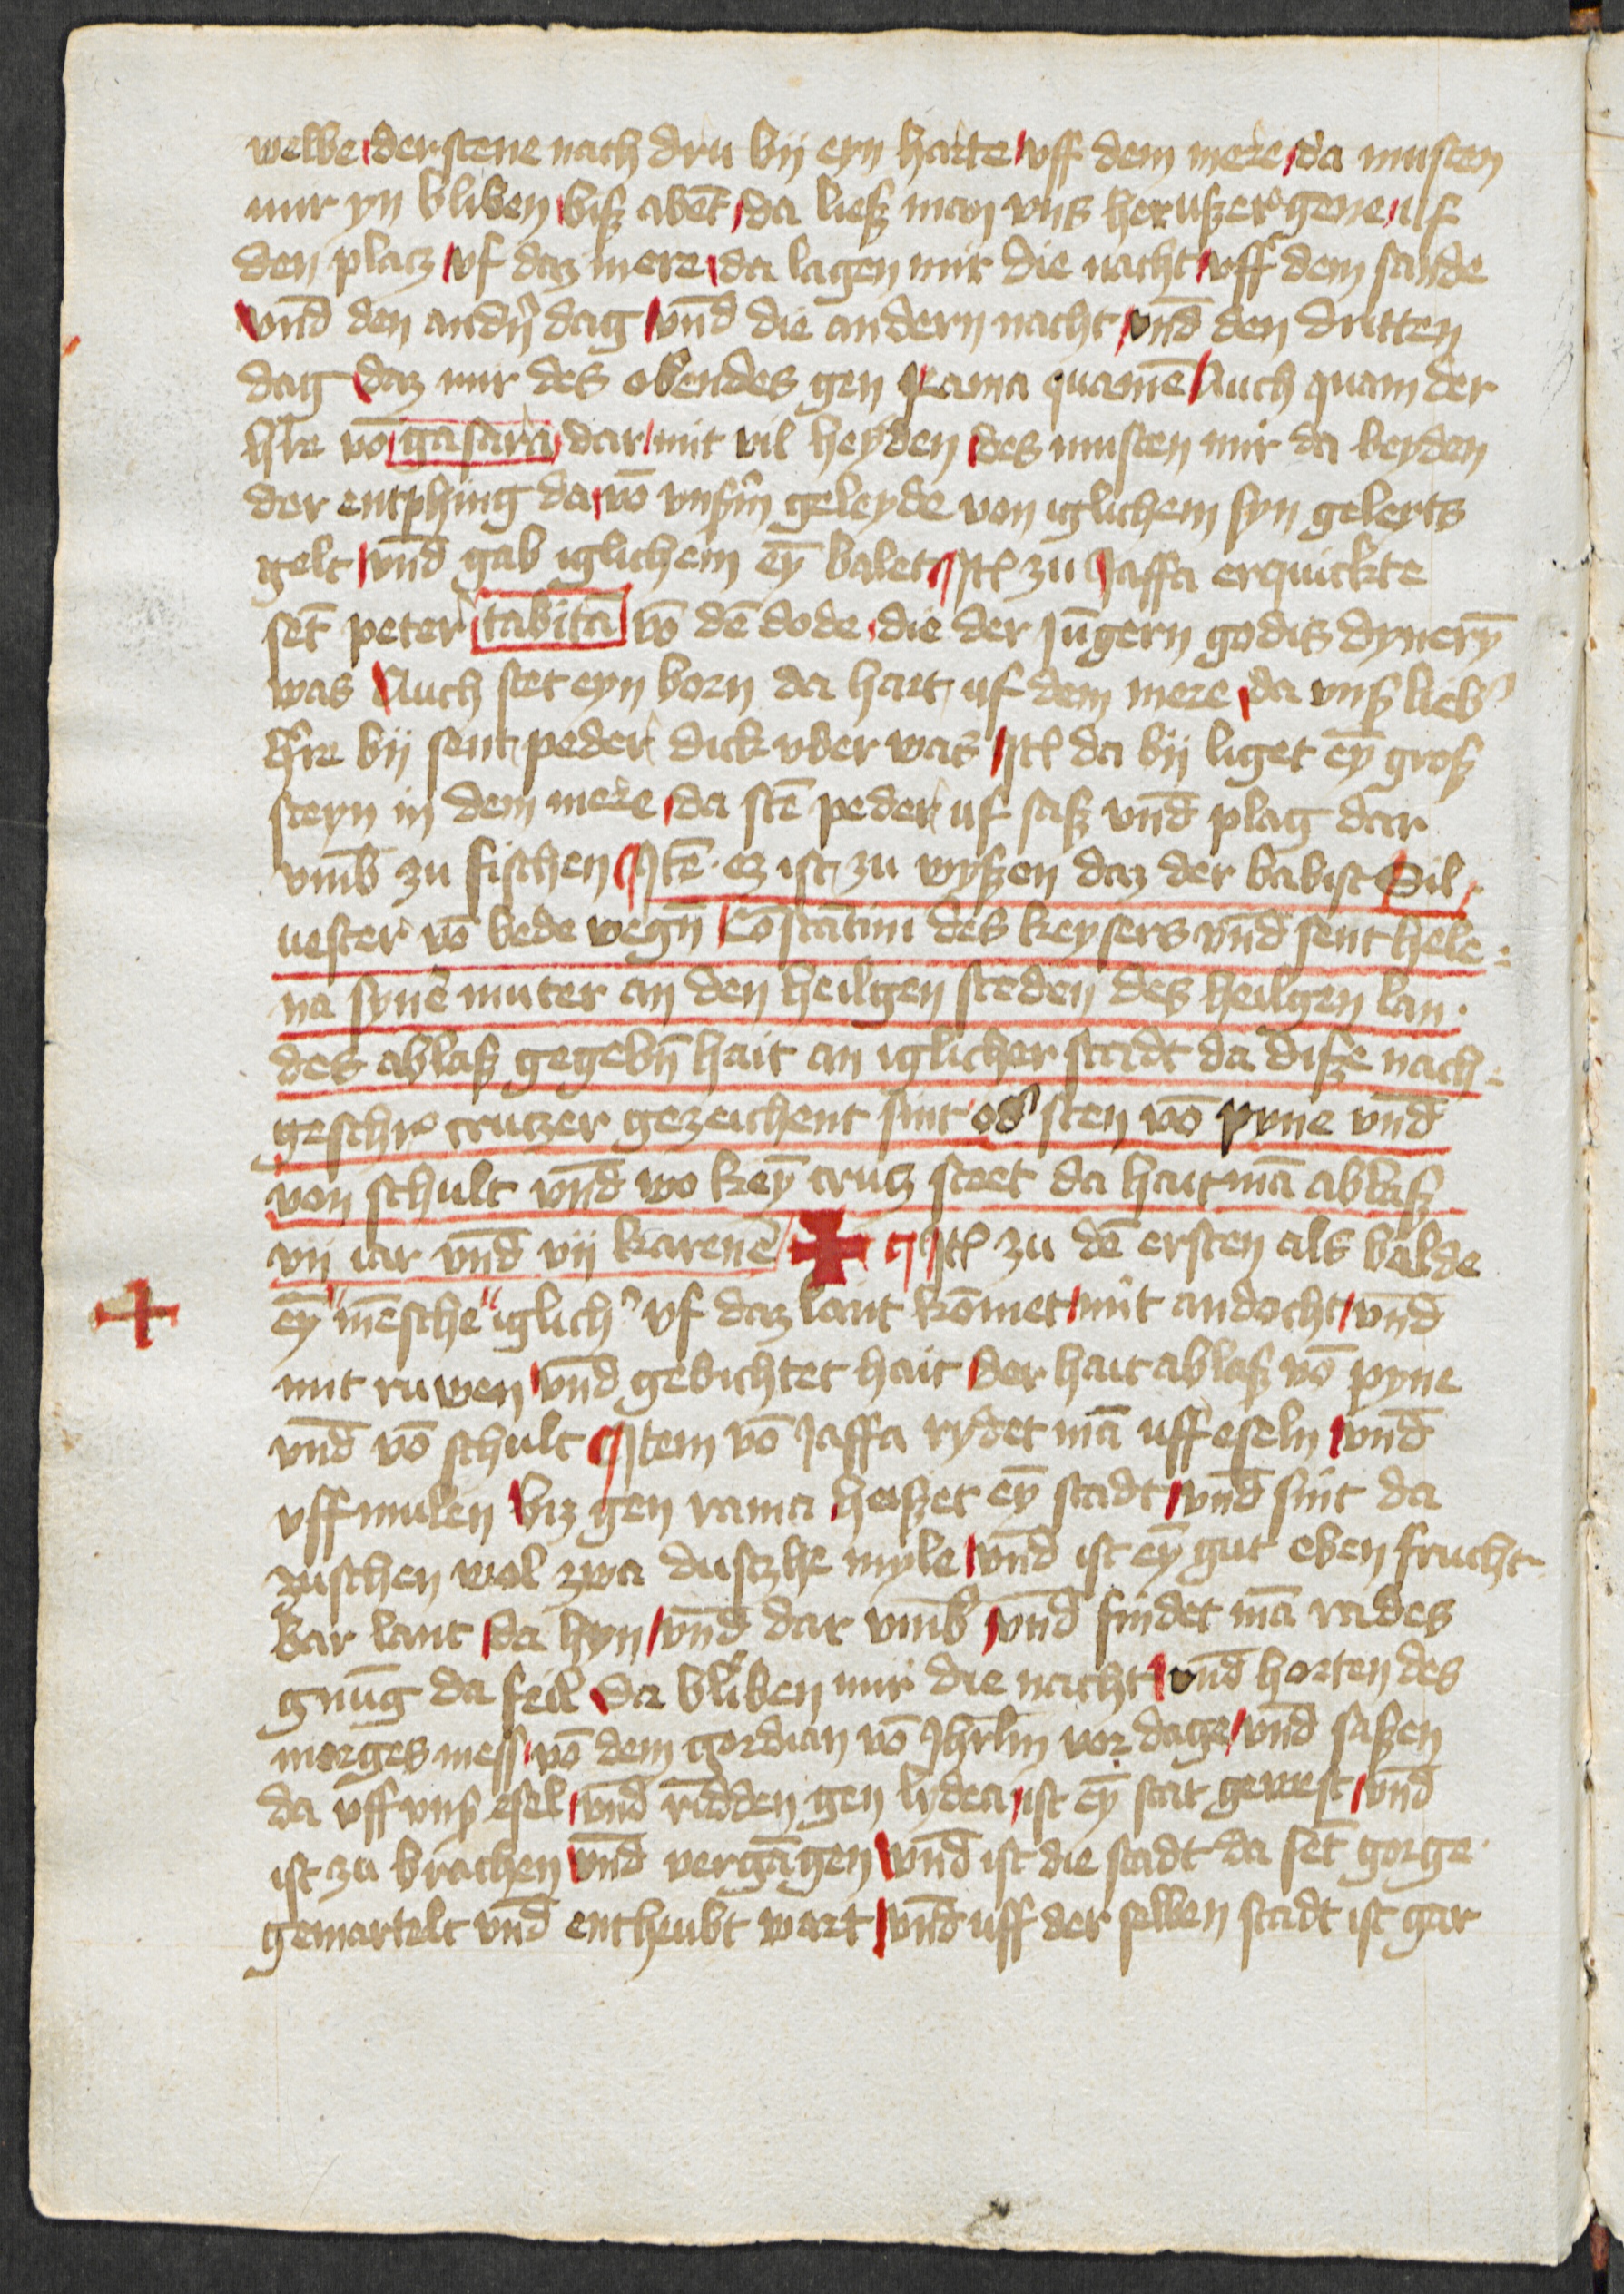 welbe der stene nach dru bij eyn harte uff dem mere da musten
mir yn bliben biß abēt da ließ man vns her ußer gene uf
den placz vf daz mere da lagen mir die nacht vff dem sande
vnd den andn̄ dag vnd die andern nacht vnd den dritten
dag daz mir des obendes gen Rama quamē Auch quam der
h̄re vō gasara dar mit vil heyden des musten mir da beyden
der entphing da vō vnsm̄ geleyde von iglichem syn geleyts
gelt vnd gab iglichem eȳ balet Itē zu Jaffa erquickte
sēt peter tabita vō dē dode die der Jūgern godis dynerȳ
was Auch stet eyn born da hart uf dem mere da vnß lieb
h̄re bij sent peder dick vber was Itē da bij liget eȳ groß
steyn in dem mere da stē peder uf saß vnd plag dar
vmb zu fischen Itē ez ist zu wyßen daz der babist Sil
uester vō bede wegn̄ Cōstātini des keysers vnd sent hele
na synē muter an den heilgen steden des heilgen lan
des ablaß gegebn̄ hait an iglicher stadt da diße nach
geschr crutzer gezeichent sint od sten vō pyne vnd
von schult vnd wo keȳ crutz steet da hait mā ablaß
vij iar vnd vij karenē ✚ Itē zu dē ersten als balde
✚ eȳ mēsche iglich vf daz lant kōmet mit andocht vnd
mit ruwen vnd gebichtet hait der hait ablaß vō pyne
vnd vō schult Item vō Jaffa rydet mā uff eseln vnd
vff mulen biz gen rama heißet eȳ stadt vnd sint da
zuschen wol zwa dusche myle vnd ist eȳ gut eben frucht
bar lant da hyn vnd dar vmb vnd findet mā rades
gnūg da feil Da bliben mir die nacht vnd horten des
morges mess vō dem gordian vō Jhrlm̄ vor dage vnd saßen
da vff vnß esel vnd ridden gen lydea ist eȳ stat gewest vnd
ist zu brachen vnd vergāgen vnd ist die stadt da sēt gorge
gemartelt vnd entheubt wart vnd uff der selben stadt ist gar